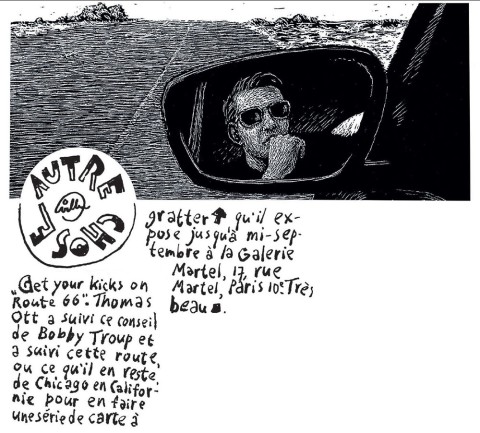 AUTRE CHOSE
willem
„Get your kicks on
Route 66". Thomas
Ott a suivi ce conseil
de Bobby Troup et
a suivi cette route,
ou ce qu'il en reste,
de Chicago en Califor-
nie pour en faire
une série de carte à
gratter qu'il ex-
pose jusqu'à mi-sep-
tembre à la Galerie
Martel, 17, rue
Martel, Paris 10e. Très
beau.